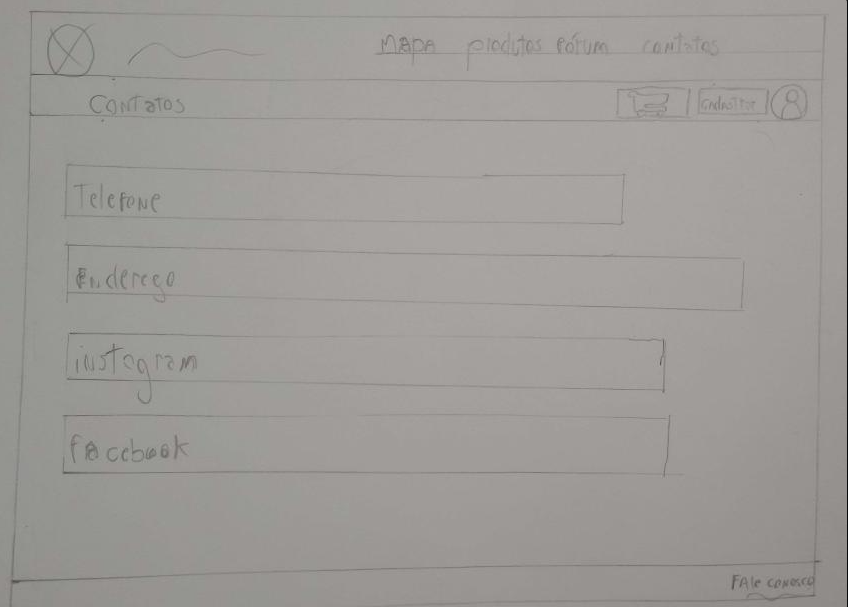 Mapa produtos Fórum contatos
Contatos
Cadastrar
Telefone
Endereço
instagram
facebook
Fale conosco